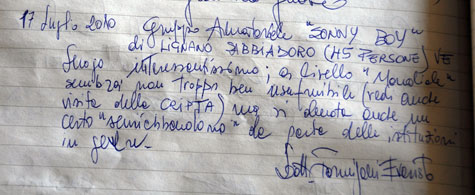 17 Luglio 2010 Gruppo Amatoriale "SONNY BOY"
di LIGNANO SABBIADORO (45 PERSONE) VE
luogo interessantissimo; a livello "Mondiale"
non troppo ben usufruibile (vedi anche
visita della CRIPTA) ma si denota anche un
certo da parte delle istituzioni
in
Dott.